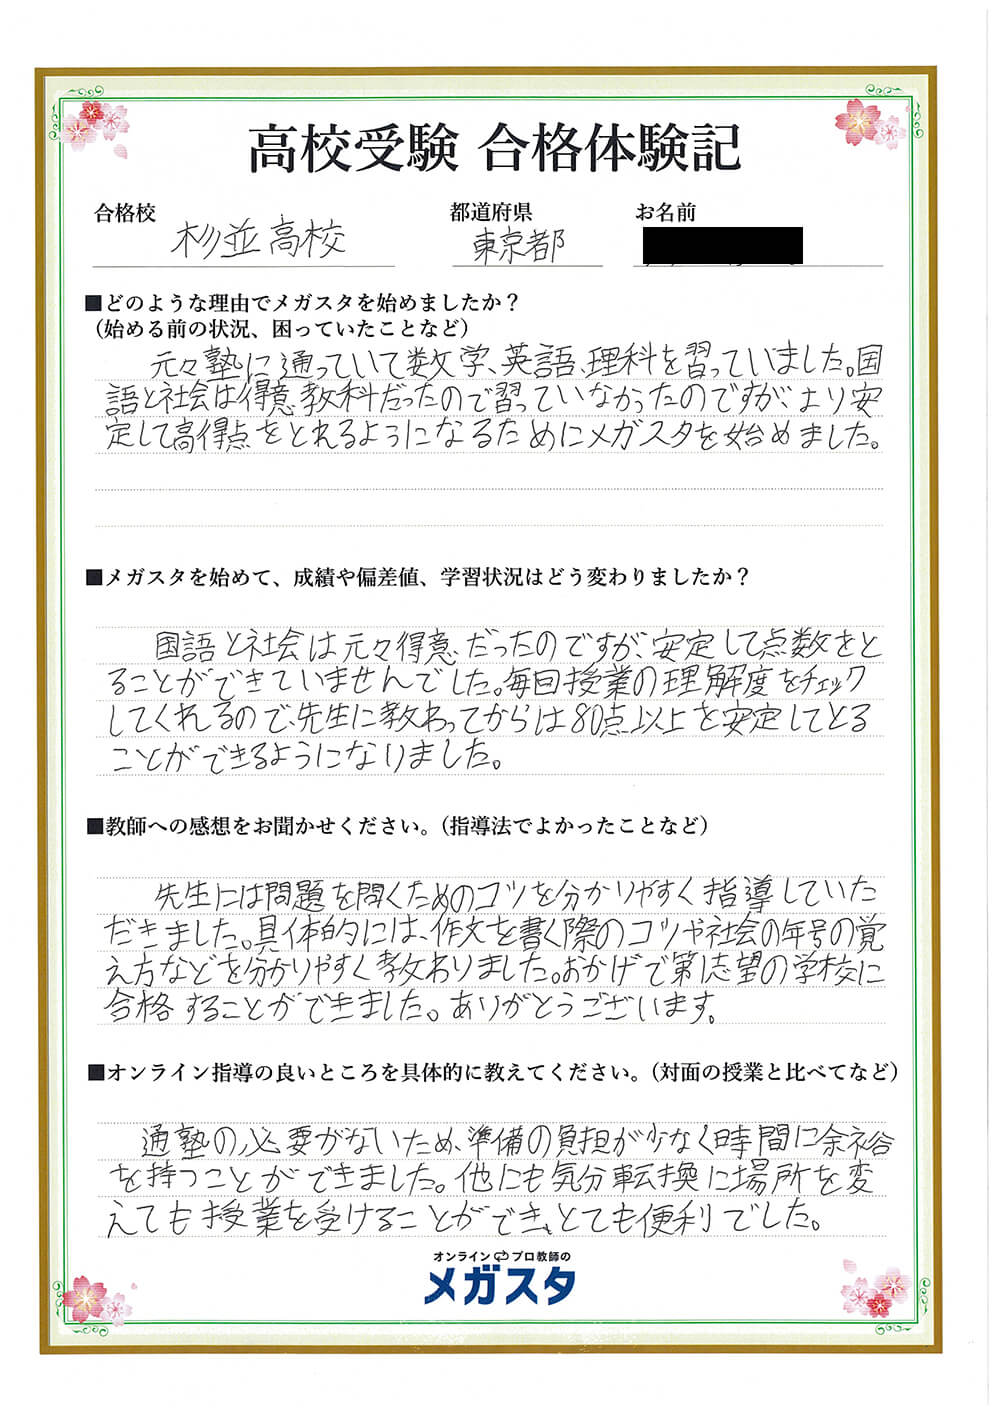 高校受験 合格体験記
合格校 杉並高校
都道府県 東京都
お名前
■どのような理由でメガスタを始めましたか？
（始める前の状況、困っていたことなど）
元々塾に通っていて数学、英語、理科を習っていました。国
語と社会は得意教科だったので習っていなかったのですが、より安
定して高得点をとれるようになるためにメガスタを始めました。
■メガスタを始めて、成績や偏差値、学習状況はどう変わりましたか？
国語と社会は元々得意だったのですが、安定して点数をと
ることができていませんでした。毎回授業の理解度をチェック
してくれるので、先生に教わってからは80点以上を安定してとる
ことができるようになりました。
■教師への感想をお聞かせください。（指導法でよかったことなど）
先生には問題を聞くためのコツを分かりやすく指導していた
だきました。具体的には、作文を書く際のコツや社会の年号の覚
え方などを分かりやすく教わりました。おかげで第1志望の学校に
合格することができました。ありがとうございます。
■オンライン指導の良いところを具体的に教えてください。（対面の授業と比べてなど）
通塾の必要がないため、準備の負担が少なく時間に余裕
を持つことができました。他にも気分転換に場所を変
えても授業を受けることができ、とても便利でした。
オンライン プロ教師の
メガスタ